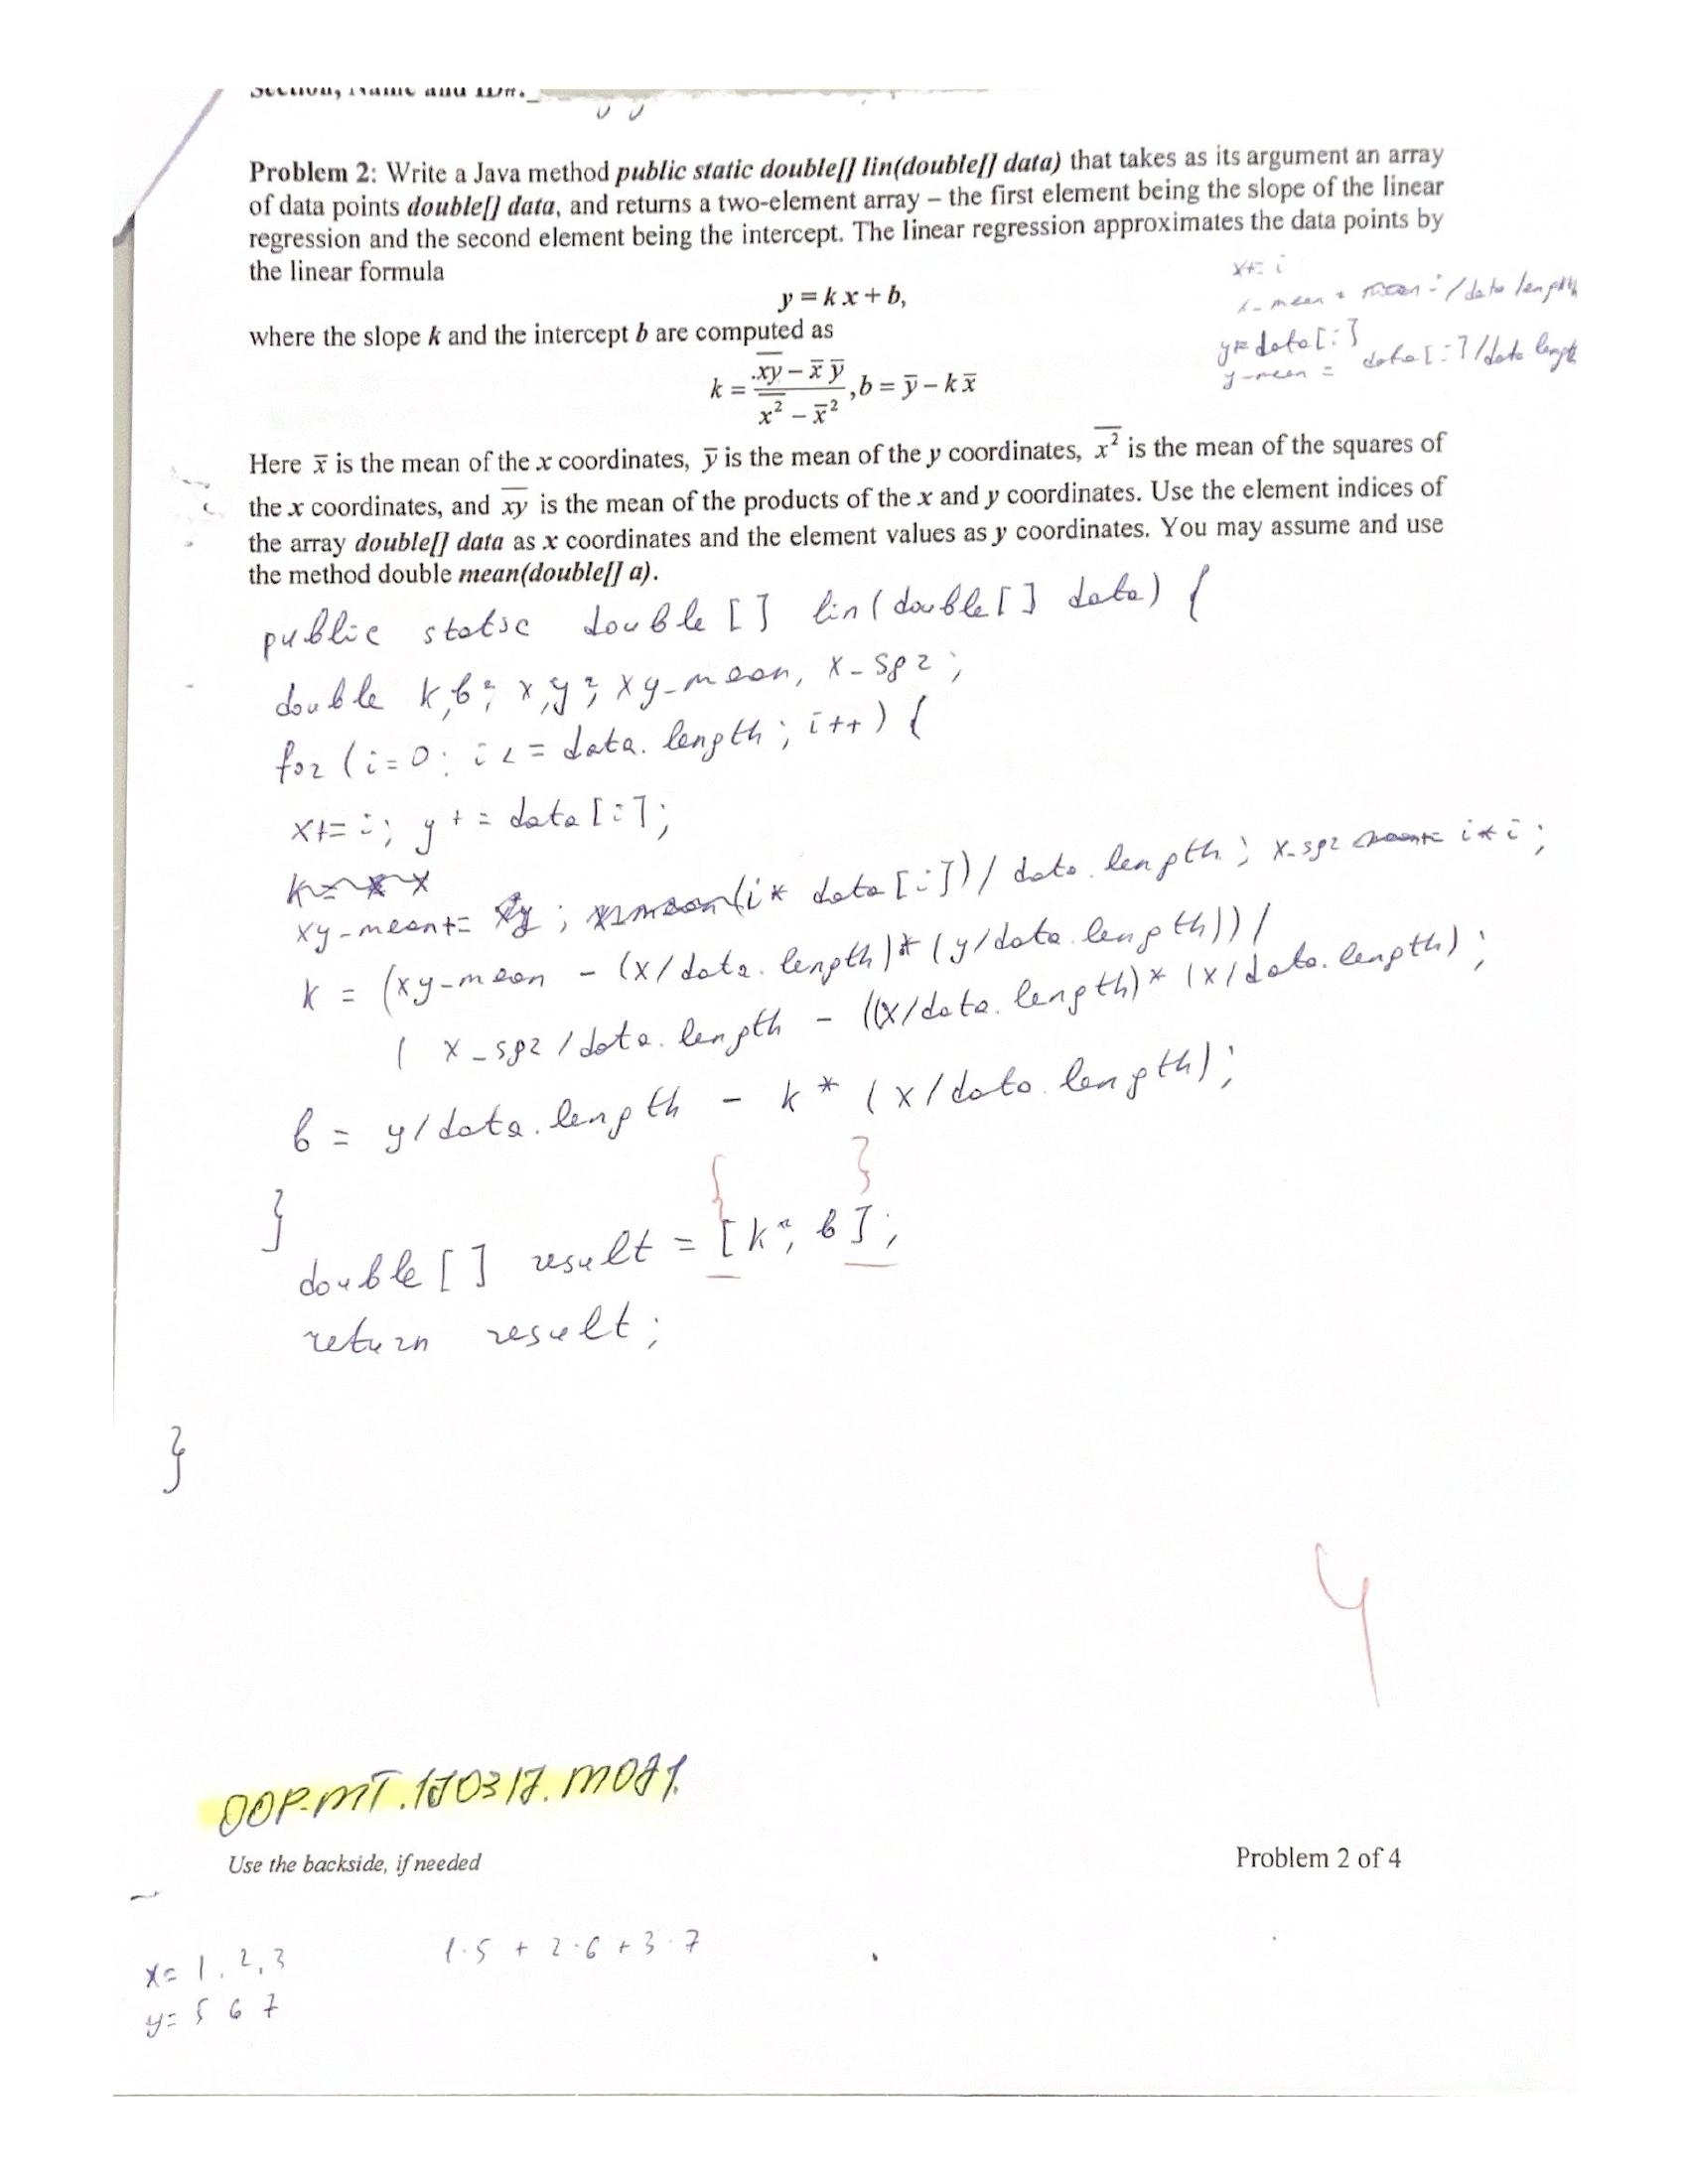 Section, Name and ID#:_
Problem 2: Write a Java method public static double[] lin(double[] data) that takes as its argument an array
of data points double[] data, and returns a two-element array – the first element being the slope of the linear
regression and the second element being the intercept. The linear regression approximates the data points by
the linear formula
x+= i
y = k x + b,
x-mean = i/data length
where the slope k and the intercept b are computed as
y= data[i]
y-mean = data[i]/data length
k = (\overline{xy} – x̄ ȳ) / (\overline{x²} – x̄²), b = ȳ – k x̄
Here x̄ is the mean of the x coordinates, ȳ is the mean of the y coordinates, \overline{x²} is the mean of the squares of
the x coordinates, and \overline{xy} is the mean of the products of the x and y coordinates. Use the element indices of
the array double[] data as x coordinates and the element values as y coordinates. You may assume and use
the method double mean(double[] a).
public static double [] lin(double[] data) {
double k,b; x,y; xy-mean, x-sqr;
for (i=0; i<= data.length; i++) {
x+= i; y += data[i];
xy-mean+= (i* data[i])/data.length; x-sqr += i*i;
k = (xy-mean - (x/data.length)*(y/data.length))/
( x-sqr/data.length - ((x/data.length)*(x/data.length);
b = y/data.length - k* (x/data.length);
{ }
}
double[] result = [k, b];
return result;
}
4
OOP.MT.170317.M071.
Use the backside, if needed
Problem 2 of 4
x= 1, 2, 3
1·5 + 2·6 + 3·7
y= 5 6 7